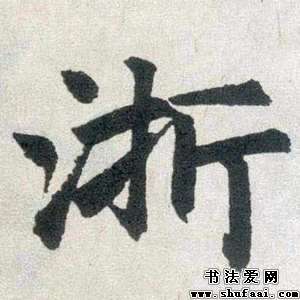 浙
书法爱网
www.shufaai.com